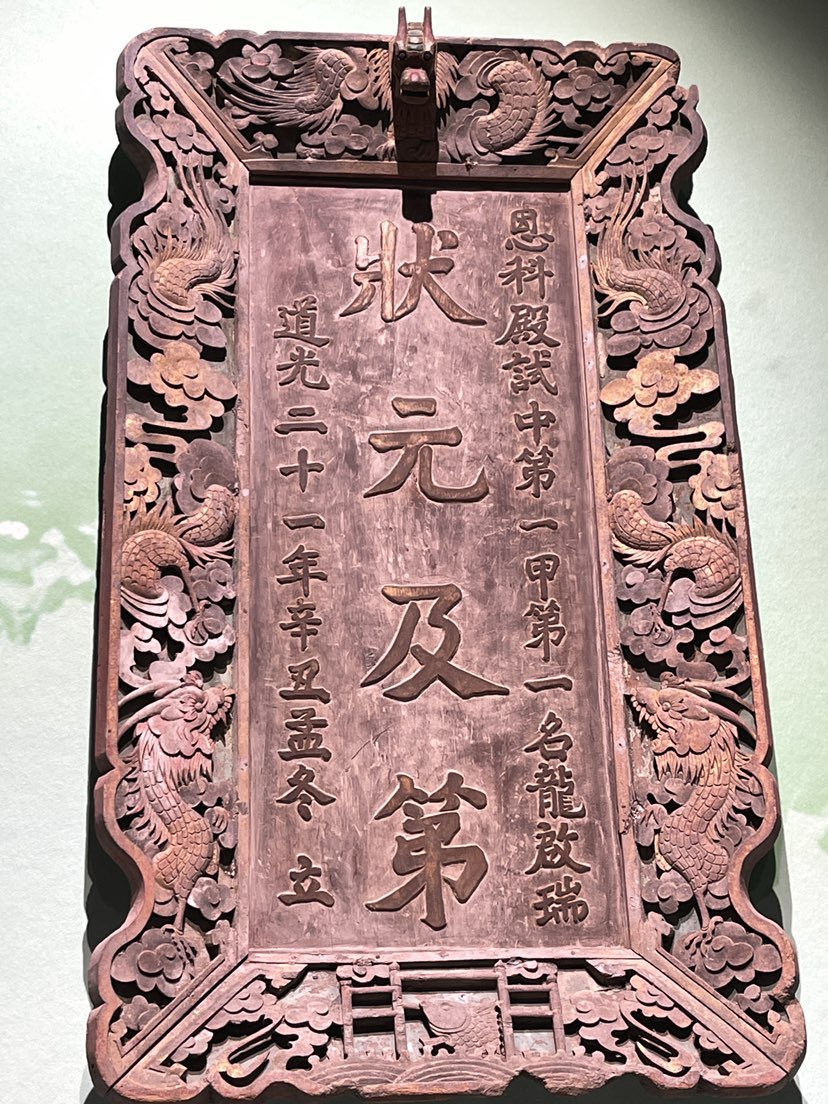 恩科殿試中第一甲第一名龍啟瑞
狀元及第
道光二十一年辛丑孟冬 立